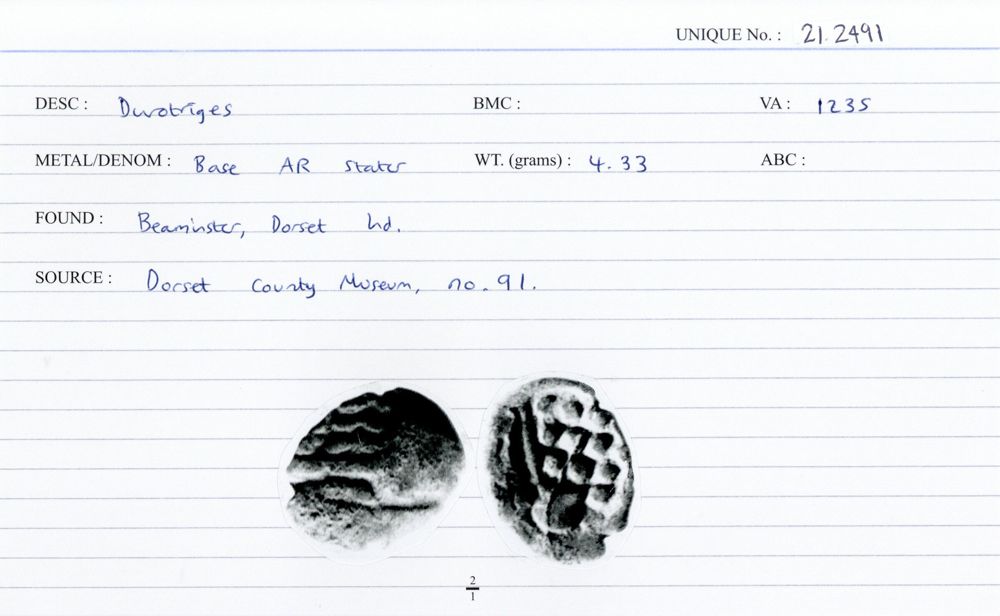 UNIQUE No. : 21.2491
DESC : Durotriges BMC : VA : 1235
METAL/DENOM : Base AR stater WT. (grams) : 4.33 ABC :
FOUND : Beaminster, Dorset hd.
SOURCE : Dorset County Museum, no. 91.
2
1